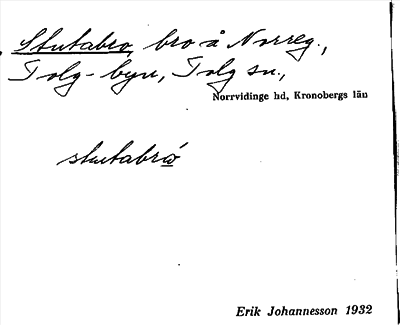 Stutabro, bro å Norreg.,
Tolg-byn, Tolg sn.,
Norrvidinge hd, Kronobergs län
stutabrω´
Erik Johannesson 1932